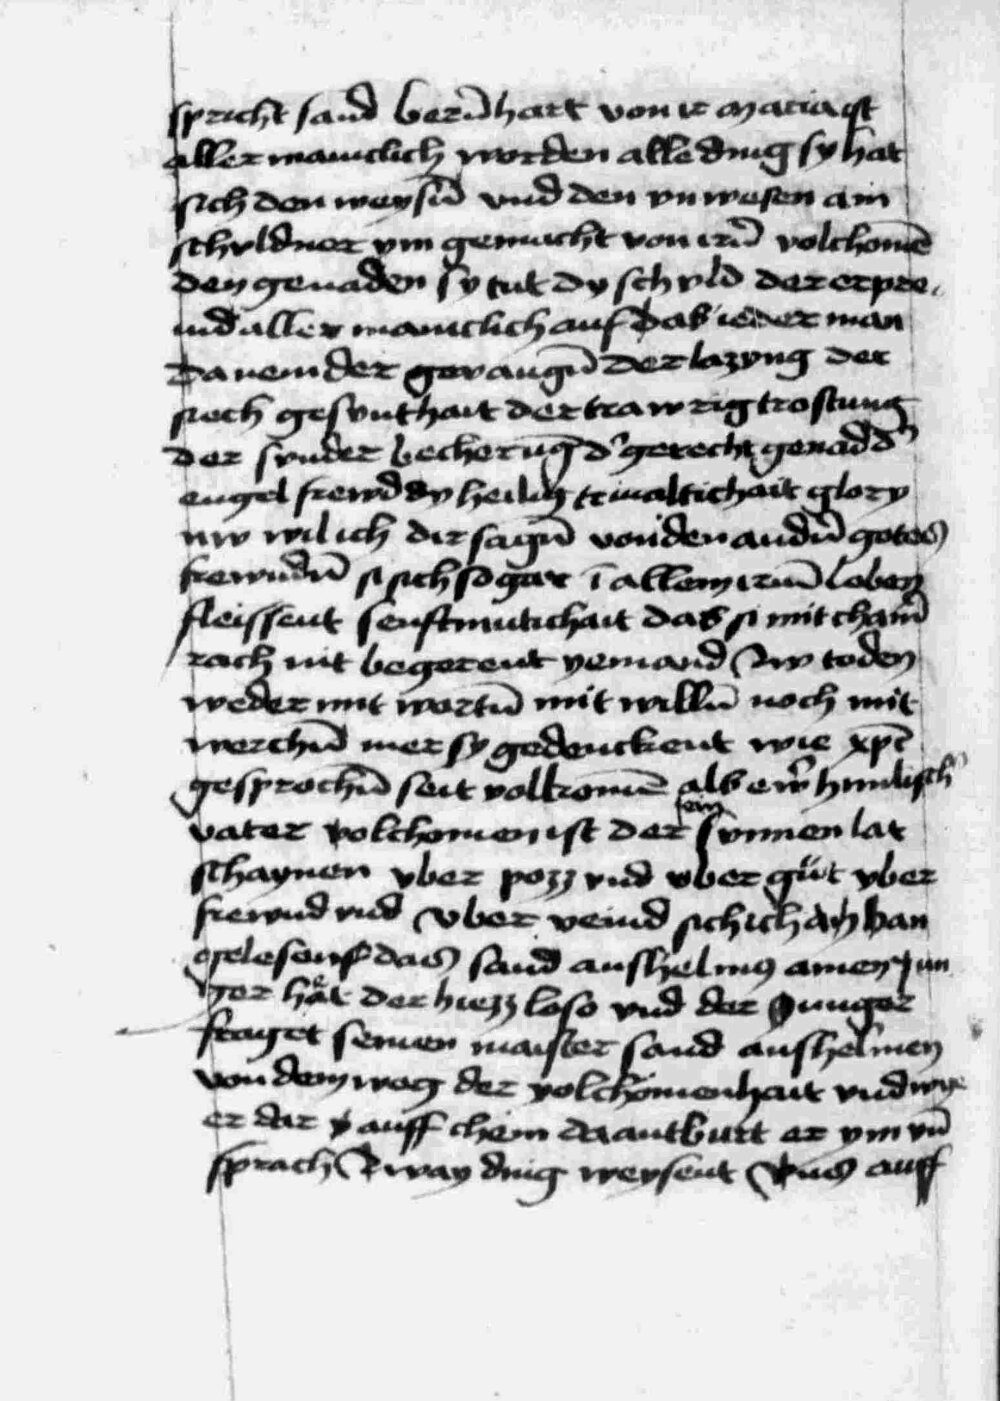 spricht sand bern̄hart von ir maria ist
aller mainclich worden alle ding sy hat
sich den weysn̄ vnd den vnwesen ain
schvldner ym gemacht von irn̄ volchomē
den genaden sy tut dy schvld der erpre
ind aller mainclich auf das ieder man
da nem der gevangn̄ der lazyng der
siech gesvnthait der trawrig trostung
der svnder becherūg d' gerecht genad d'
engel frewd dy heilig triualtichait glory
nw wil ich dir sagn̄ von den andn̄ gotes
frewndn̄ si sich so gar ī allem irm̄ leben
fleissent senftmutichait das si mit chainr̄
rach nit begerent yemand zw toden
weder mit wortn̄ mit willn̄ noch mit
werchn̄ mer sy gedenckent wie xp̄c
gesprochn̄ seit volkomē als ewr̄ himlisch'
vater volchomen ist der sein svnnen lat
schaynen vber pozz vnd vber güt vber
frewnd vnd vber veind sich ich han
gelesen das sand anshelmus ainen Jun
ger hät der hiezz loso vnd der Junger
fraget seinen maister sand anshelmen
von dem weg der volchomenhait vnd wye
er dar auff chem da antburt er ym vn̄
sprach zway ding weysent vns auff